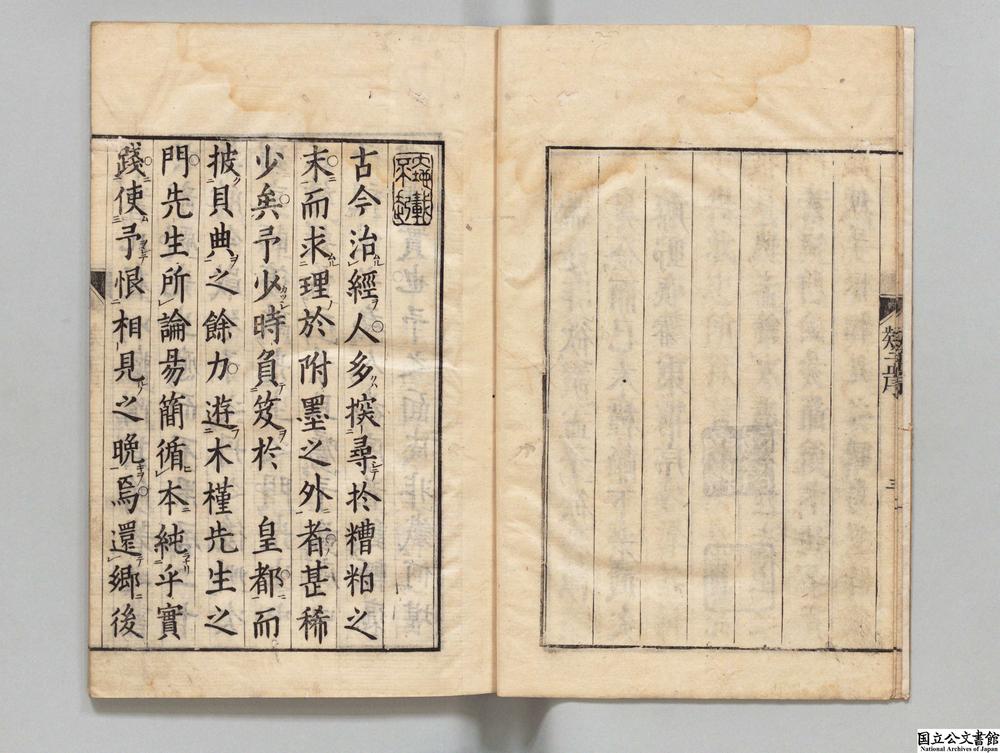 序
三
古今治經人多探尋於糟粕之
末而求理於附墨之外者甚稀
少矣予少時負笈於　皇都而
披貝典之餘力遊木槿先生之
門先生所論易簡循本純乎實
踐使予恨相見之晚焉還鄉後
国立公文書館
National Archives of Japan